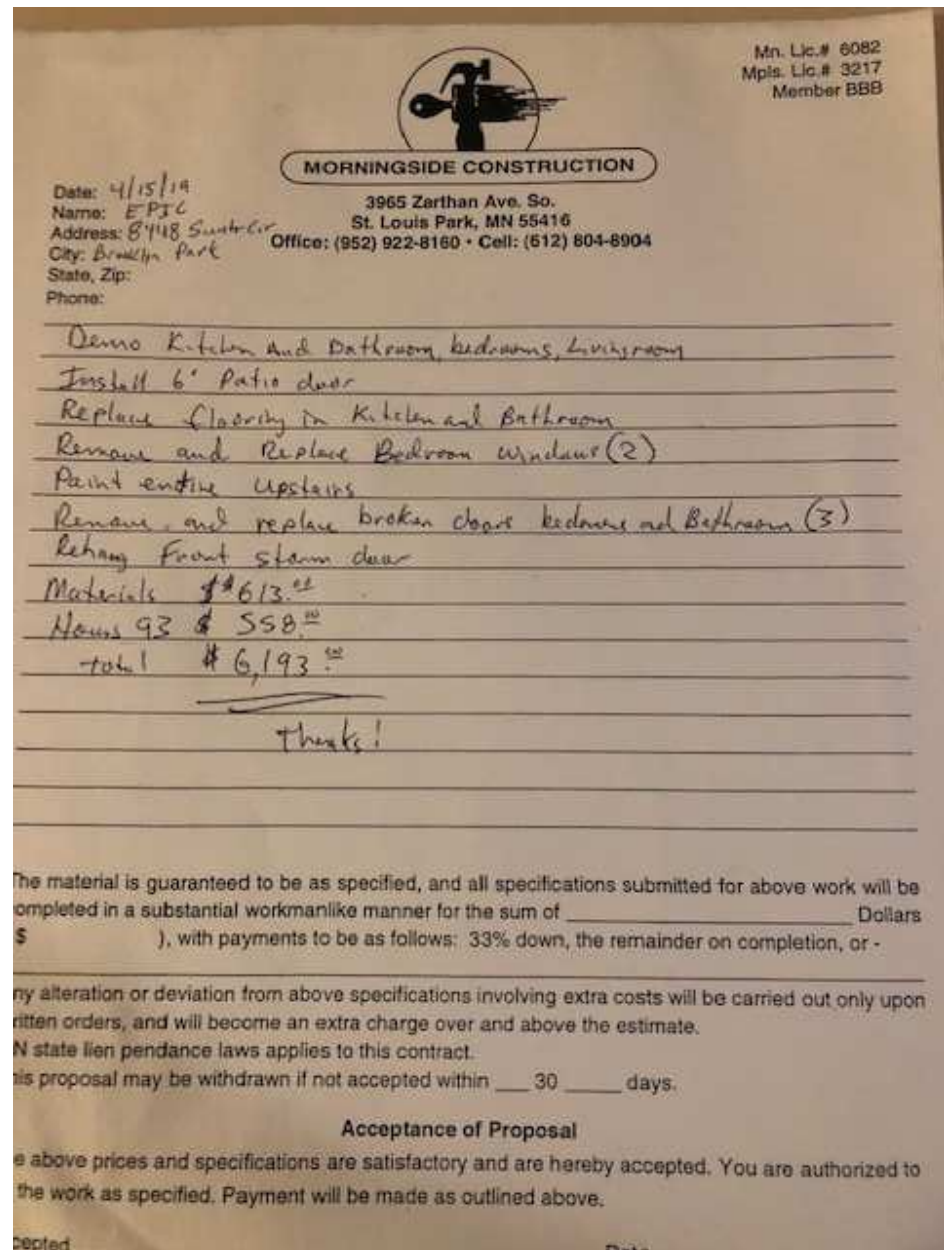 Mn. Lic.# 6082
Mpls. Lic.# 3217
Member BBB
MORNINGSIDE CONSTRUCTION
3965 Zarthan Ave. So.
St. Louis Park, MN 55416
Office: (952) 922-8160 • Cell: (612) 804-8904
Date: 4/15/19
Name: EPIC
Address: 8448 Cir
City: Brooklyn Park
State, Zip:
Phone:
Demo Kitchen And Bathroom, bedrooms, Livingroom
Install 6' Patio door
Replace flooring in Kitchen and Bathroom
Remove and Replace Bedroom windows (2)
Paint entire upstairs
Remove and replace broken doors bedrooms and Bathroom (3)
Rehang Front storm door
Materials $ $613.00
Hours 93 $ 558.00
total $ 6,193.00
Thanks!
The material is guaranteed to be as specified, and all specifications submitted for above work will be
ompleted in a substantial workmanlike manner for the sum of ____ Dollars
$ ), with payments to be as follows: 33% down, the remainder on completion, or -
ny alteration or deviation from above specifications involving extra costs will be carried out only upon
ritten orders, and will become an extra charge over and above the estimate.
N state lien pendance laws applies to this contract.
is proposal may be withdrawn if not accepted within ___ 30 ____ days.
Acceptance of Proposal
e above prices and specifications are satisfactory and are hereby accepted. You are authorized to
the work as specified. Payment will be made as outlined above.
cepted Date